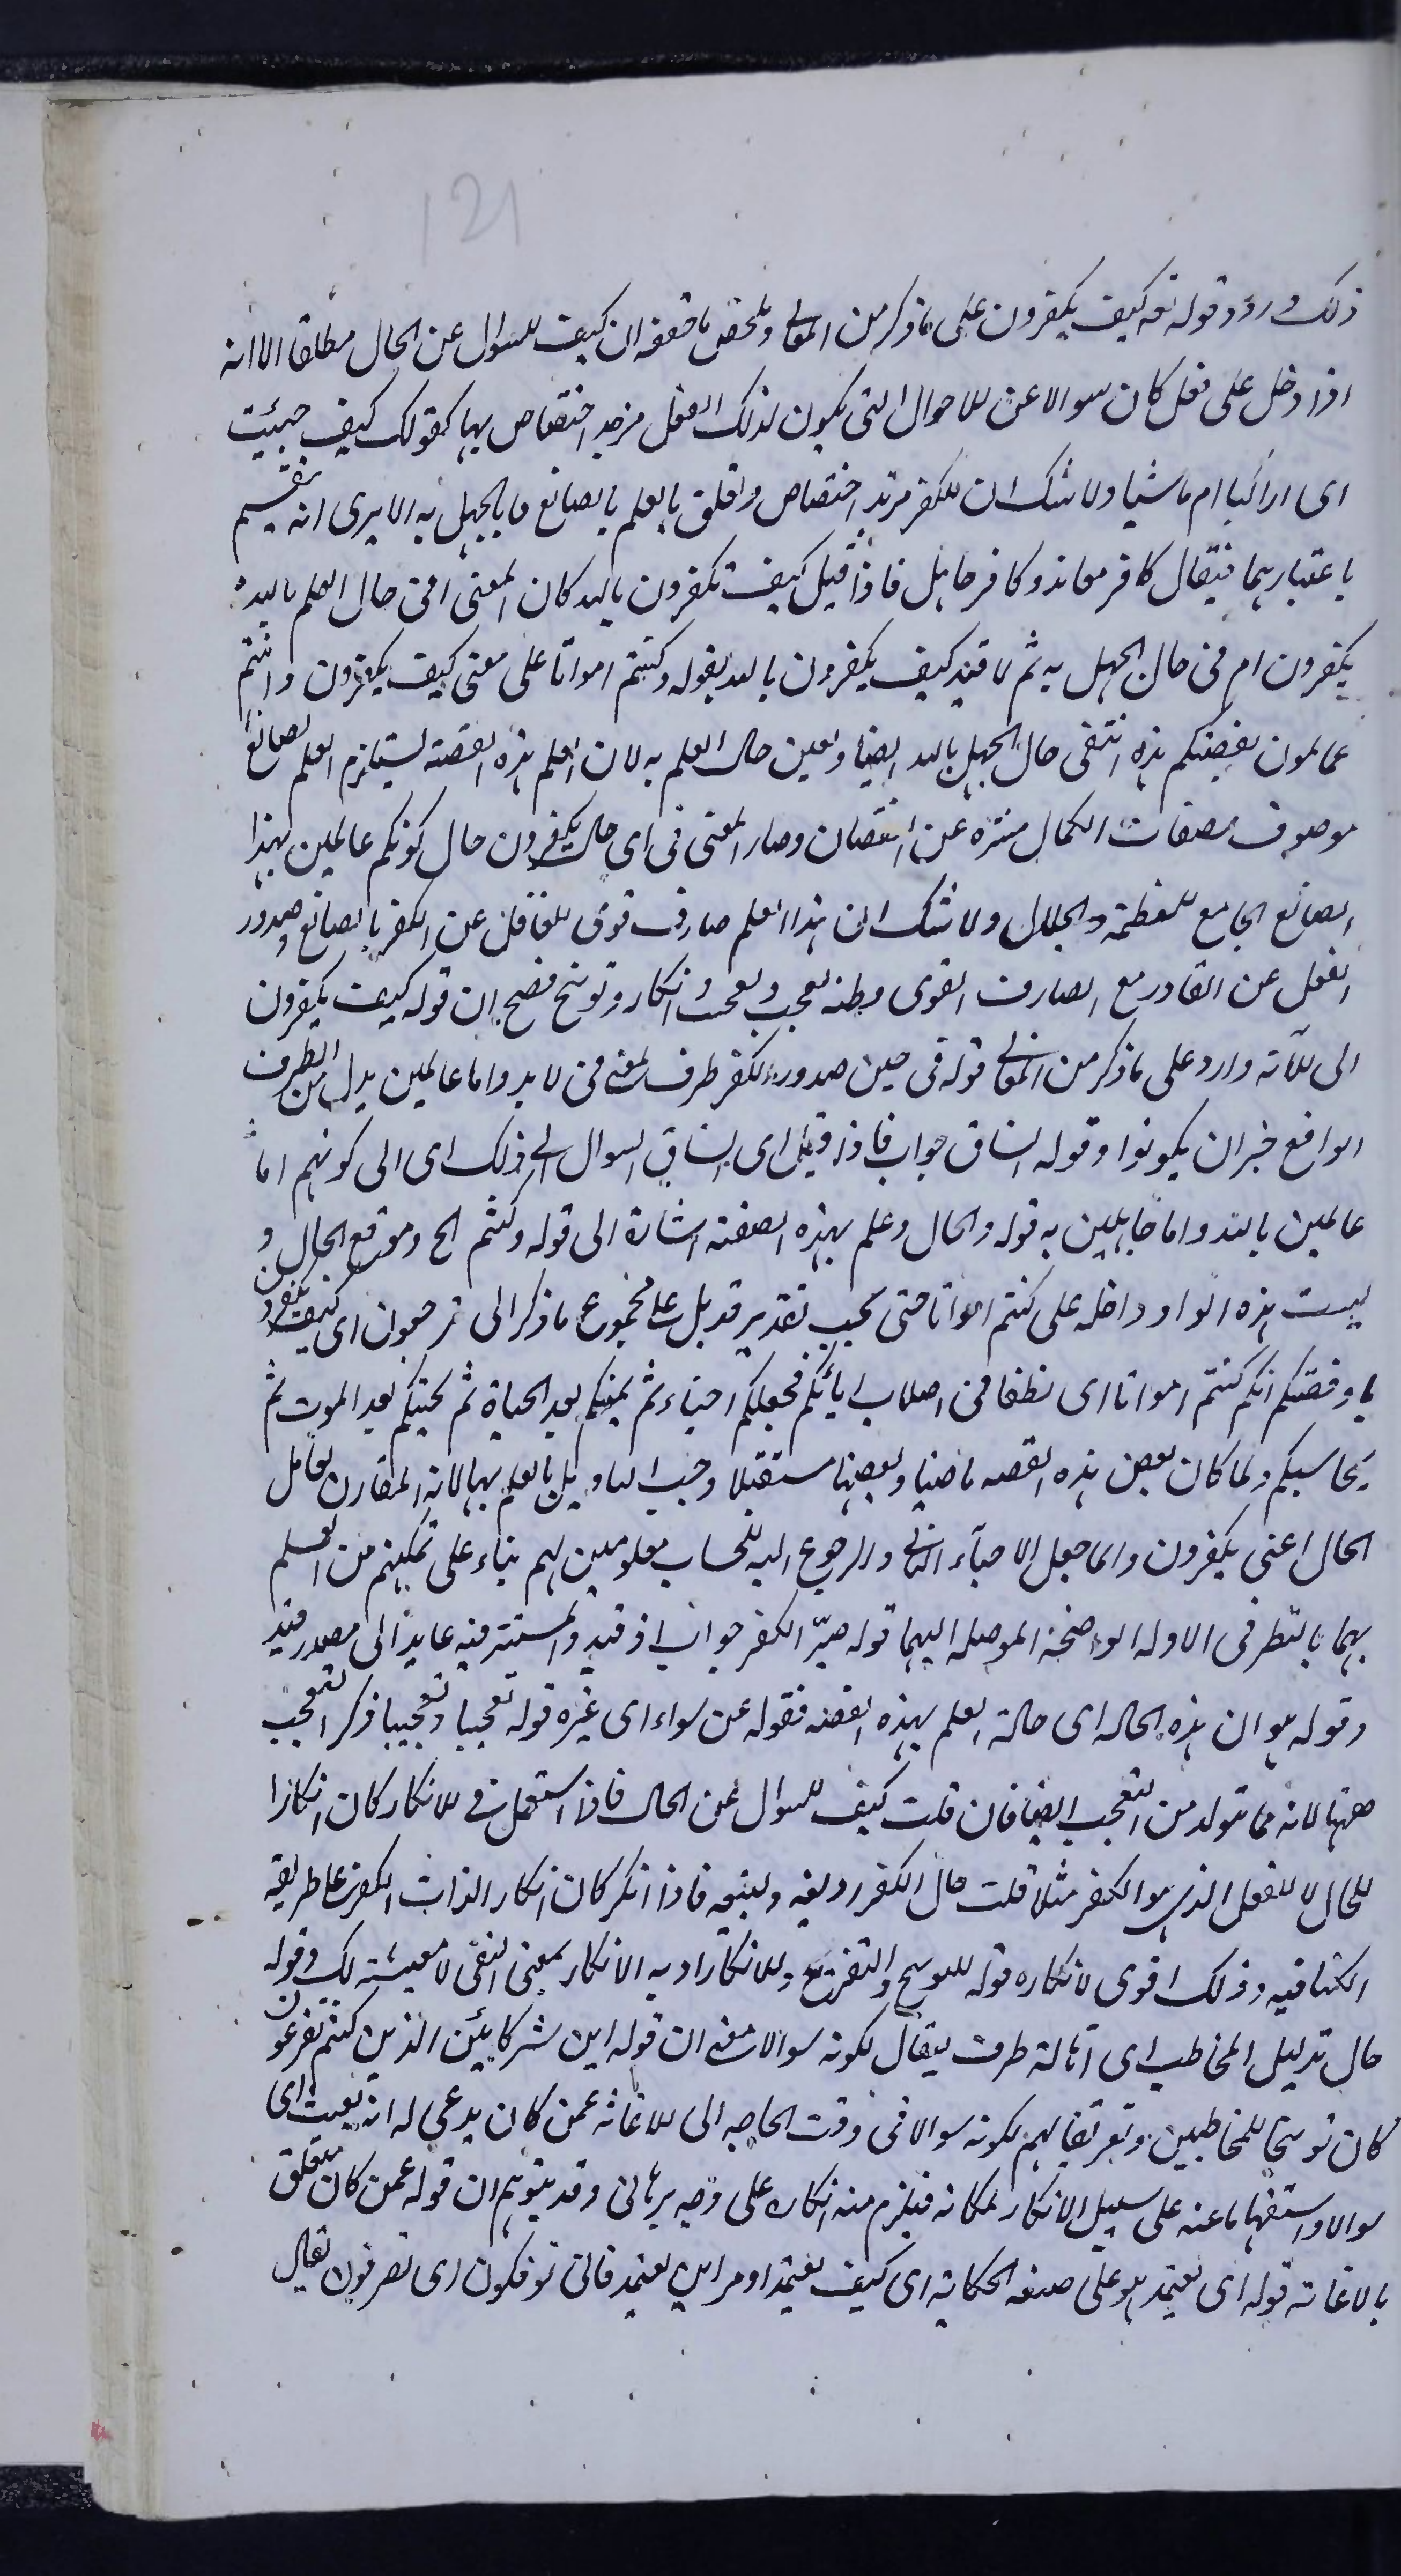 121
ذلك ورود قوله تعه كيف يكفرون على ما ذكر من المعانى وملخص ما حققه ان كيف للسوال عن الحال مطلقا الا انه
اذا دخل على فعل كان سوالا عن للاحوال التى يكون لذلك الفعل مزيد اختصاص بها كقولك كيف جيئت
اى اراكبا ام ماشيا ولا شك ان للكفر مزيد اختصاص وتعلق بالعلم بالصانع وبالجهل به الا يرى انه ينقسم
باعتبارهما فيقال كافر معاند وكافر جاهل فاذا قيل كيف تكفرون بالله كان المعنى افى حال العلم بالله
يكفرون ام فى حال الجهل به ثم لا قيد كيف يكفرون بالله بقوله وكنتم امواتا على معنى كيف يكفرون وانتم
عالمون بقصتكم هذه انتفى حال الجهل بالله ايضا وتعين حال العلم به لان العلم بهذه القصة يستلزم العلم بصانع
موصوف بصفات الكمال منزه عن النقصان وصار المعنى فى اى حال يكفرون حال كونكم عالمين بهذا
الصانع الجامع للعظمة والجلال ولا شك ان هذا العلم صارف قوى للعاقل عن الكفر بالصانع وصدور
الفعل عن القادر مع الصارف القوى مظنه تعجب وتعجيب وانكار وتوبيخ فصح ان قوله كيف يكفرون
الى للآية وارد على ما ذكر من المعانى قوله فى حين صدور الكفر ظرف لمعنى لا بد واما عالمين بدل من الظرف
الواقع خبر ان يكونوا وقوله انساق جواب فاذا قيل اى انساق السوال الى ذلك اى الى كونهم اما
عالمين بالله واما جاهلين به قوله والحال وعلم بهذه الصفة اشارة الى قوله وكنتم الخ وموقع الحال و
ليست هذه الواو داخله على كنتم امواتا حتى يجب تقدير قد بل على مجموع ما ذكر الى ترجعون اى كيف تكفرون
بالله وقصتكم انكم كنتم امواتا اى نطفا فى اصلاب ابائكم فجعلكم احياء ثم يميتكم بعد الحياة ثم يحييكم بعد الموت ثم
يحاسبكم ولما كان بعض هذه القصه ماضيا وبعضها مستقبلا وجب التاويل بالعلم بها لانه المقارن لعامل
الحال اعنى يكفرون وانما جعل الاحياء الثانى والرجوع اليه للحساب معلومين لهم بناء على تمكنهم من العلم
بهما بالنظر فى الادله الواضحة الموصله اليهما قوله صيّر الكفر جواب اذ قيد والمستتر فيه عايد الى مصدر قيد
وقوله هو ان هذه الحاله اى حالة العلم بهذه القصة فقوله عن سواء اى غيره قوله تعجبا وتعجيبا ذكر التعجب
ههنا لانه مما يتولد من التعجب ايضا فان قلت كيف للسوال عن الحال فاذا استعملت فى للانكار كان انكارا
للحال لا للفعل الذى هو الكفر مثلا قلت حال الكفر رديفه ولتبعه فاذا انكر كان انكار الذات الكفر على طريقة
الكنايه وذلك اقوى لانكاره قوله للتوبيخ والتقريع وللانكار اراد به الانكار بمعنى النفى لا معيشة لك وقوله
حال تذليل المخاطب اى آتالة ظرف ليقال لكونه سوالا معنى ان قوله اين شركايئى الذين كنتم تزعمون
كان توبيخا للمخاطبين وتقريعا لهم لكونه سوالا فى وقت الحاجه الى للاغاثه عمن كان يدعى له انه يغيث اى
سوالا واستفهاما عنه على سبيل الانكار لمكانه فيلزم منه انكاره على وجه برهانى وقد يتوهم ان قوله عمن كان متعلق
بالاغاثه قوله اى تعتمد هو على صيغه الحكايه اى كيف تعتمد او من اين تعتمد فانى توفكون اى تصرفون يقال